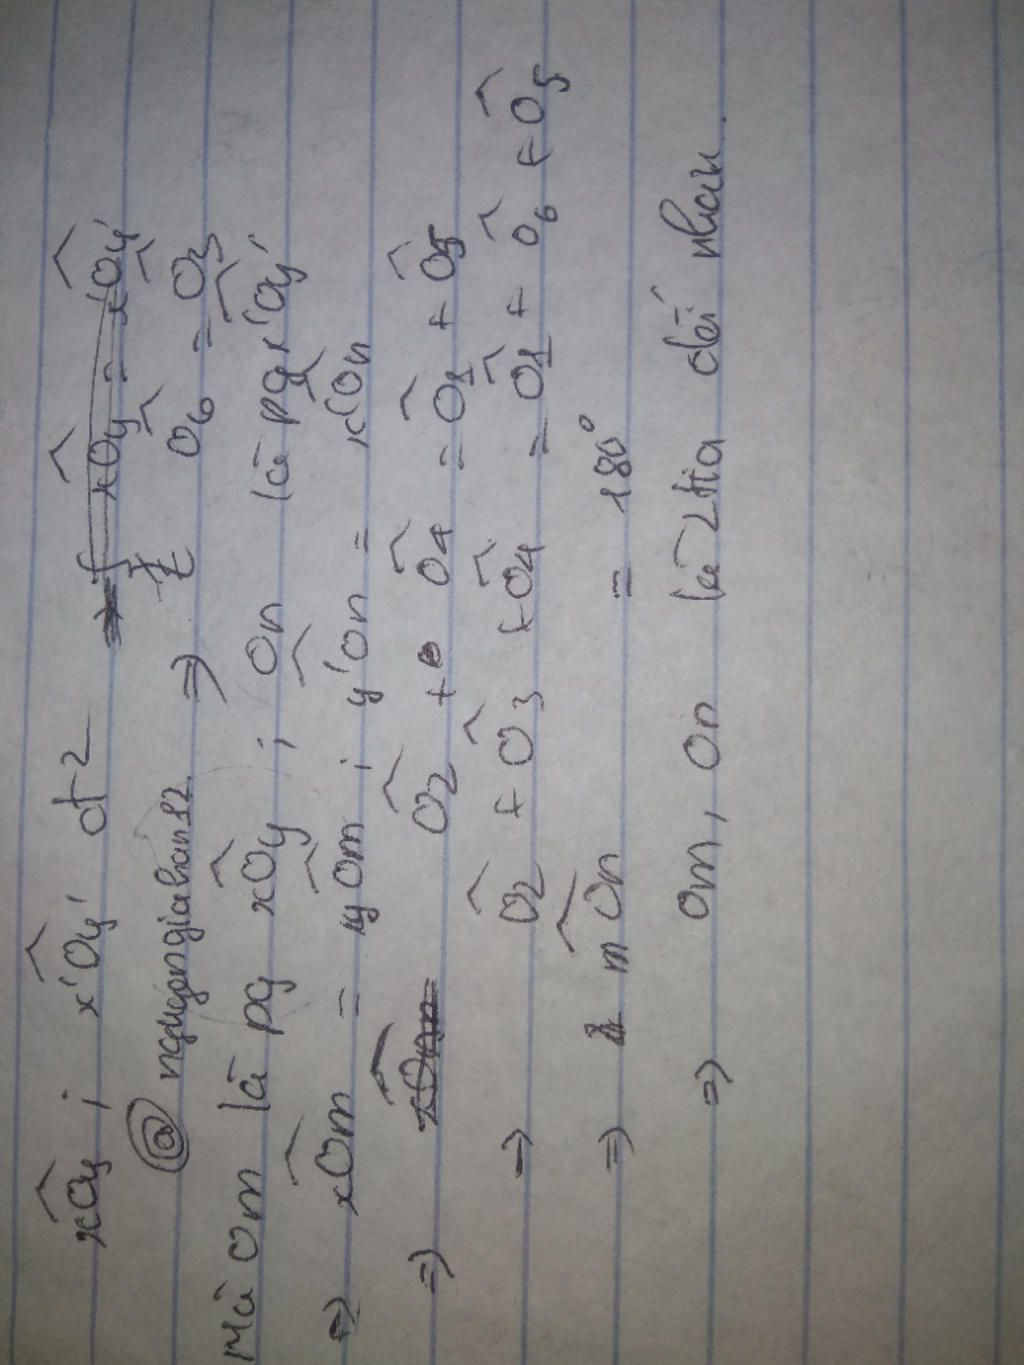 xOy ; x'Oy' đ2 ⇒ xOy = x'Oy'
@ nguyengiahan12 ⇒ O6 = O3
Mà Om là pg xOy ; On là pg x'Oy'
⇒ xOm = yOm ; y'On = x'On
⇒ O2 + O4 = O1 + O5
⇒ O2 + O3 + O4 = O1 + O6 + O5
⇒ mOn = 180°
⇒ Om, On là 2 tia đối nhau.